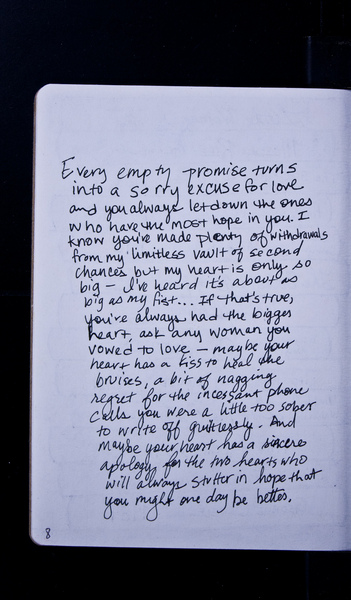 Every empty promise turns
into a sorry excuse for love
and you always let down the ones
who have the most hope in you. I
know you've made plenty of withdrawals
from my limitless vault of second
chances but my heart is only so
big — I've heard it's about as
big as my fist... If that's true,
you've always had the bigger
heart, ask any woman you
vowed to love — maybe your
heart has a kiss to heal the
bruises, a bit of nagging
regret for the incessant phone
calls you were a little too sober
to write off guiltlessly. And
maybe your heart has a sincere
apology for the two hearts who
will always stutter in hope that
you might one day be better.
8